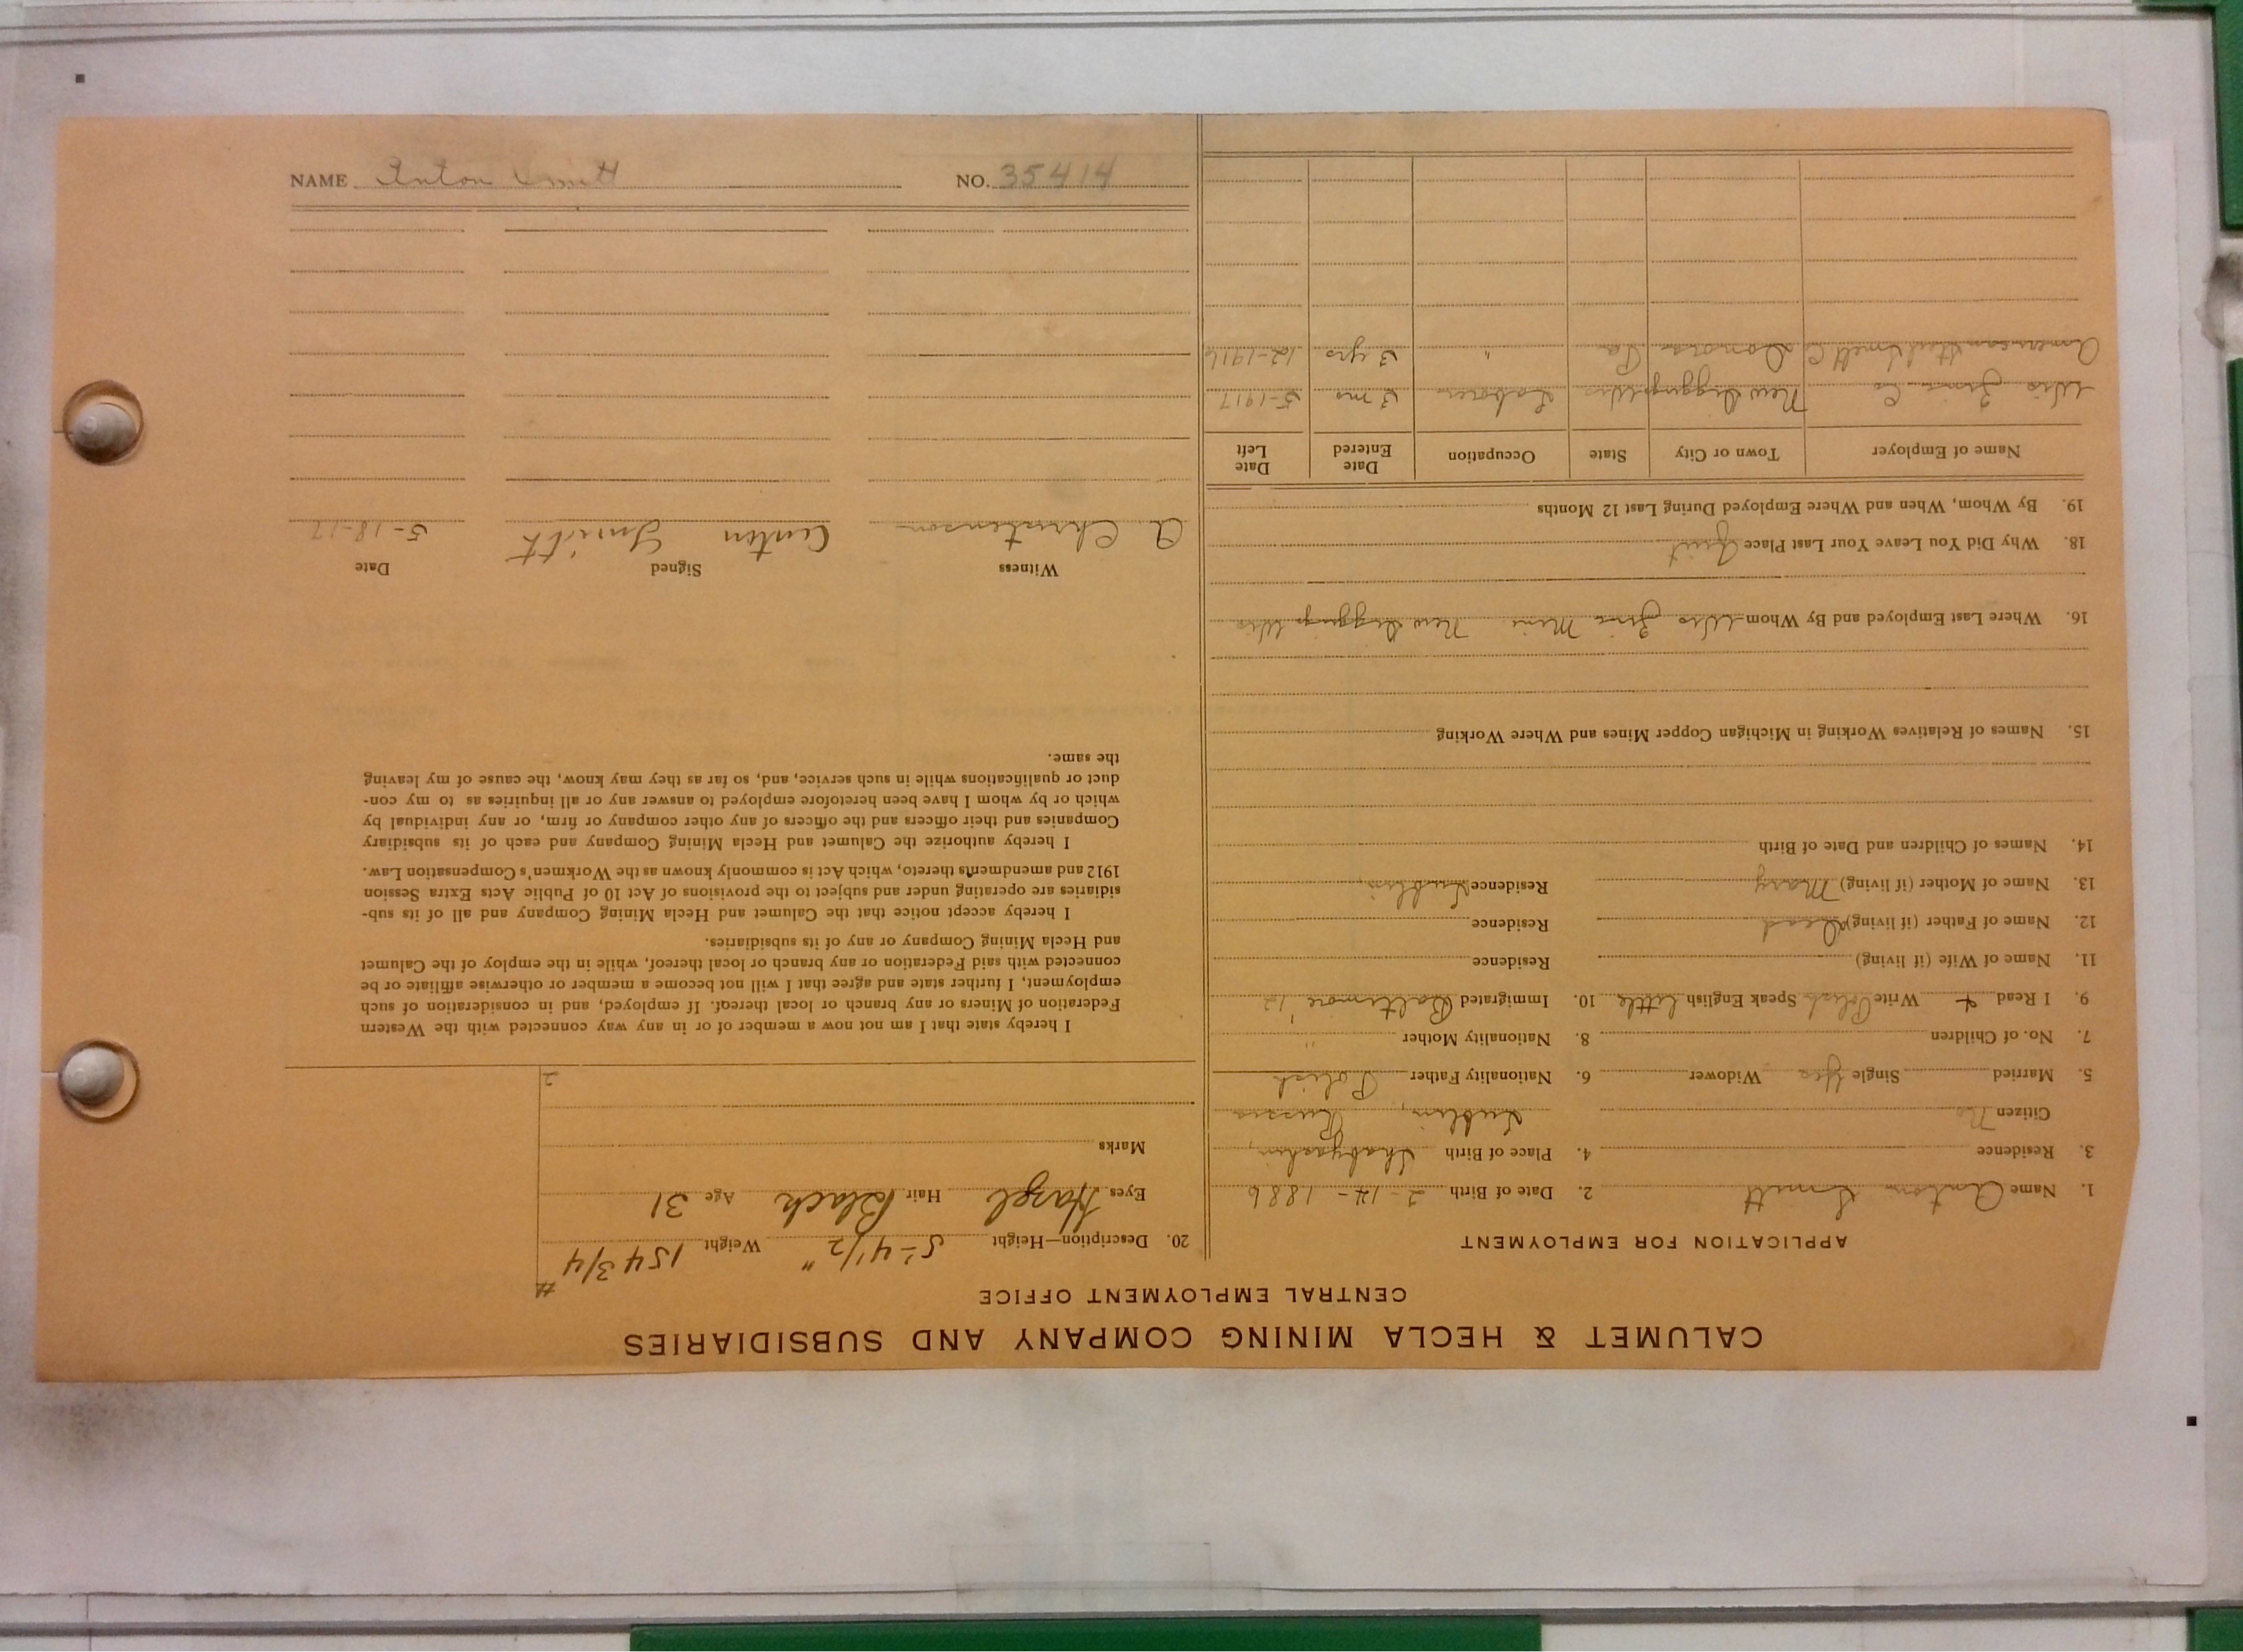 CALUMET & HECLA MINING COMPANY AND SUBSIDIARIES
CENTRAL EMPLOYMENT OFFICE
APPLICATION FOR EMPLOYMENT
1. Name Anton Smitt 2. Date of Birth 2-14-1886
3. Residence 4. Place of Birth
Citizen No Lublin, Russia
5. Married Single Yes Widower 6. Nationality Father Polish
7. No. of Children 8. Nationality Mother "
9. I Read & Write Polish Speak English Little 10. Immigrated Baltimore '12
11. Name of Wife (if living) Residence
12. Name of Father (if living) Dead Residence
13. Name of Mother (if living) Mary Residence Lublin,
14. Names of Children and Date of Birth
15. Names of Relatives Working in Michigan Copper Mines and Where Working
16. Where Last Employed and By Whom Wis Zinc Mine New Diggings Wis
18. Why Did You Leave Your Last Place Quit
19. By Whom, When and Where Employed During Last 12 Months
Name of Employer Town or City State Occupation Date Entered Date Left
Wis Zinc Co New Diggings Wis Laborer 3 ms 5-1917
American Steel Smelt Co Donora Pa " 3 yrs 12-1916
20. Description—Height 5'-4 1/2" Weight 154 3/4 #
Eyes Hazel Hair Black Age 31
Marks
2
I hereby state that I am not now a member of or in any way connected with the Western
Federation of Miners or any branch or local thereof. If employed, and in consideration of such
employment, I further state and agree that I will not become a member or otherwise affiliate or be
connected with said Federation or any branch or local thereof, while in the employ of the Calumet
and Hecla Mining Company or any of its subsidiaries.
I hereby accept notice that the Calumet and Hecla Mining Company and all of its sub-
sidiaries are operating under and subject to the provisions of Act 10 of Public Acts Extra Session
1912 and amendments thereto, which Act is commonly known as the Workmen's Compensation Law.
I hereby authorize the Calumet and Hecla Mining Company and each of its subsidiary
Companies and their officers and the officers of any other company or firm, or any individual by
which or by whom I have been heretofore employed to answer any or all inquiries as to my con-
duct or qualifications while in such service, and, so far as they may know, the cause of my leaving
the same.
Witness Signed Date
A. Christenson Anton Smitt 5-18-17
NAME Anton Smitt NO. 35414